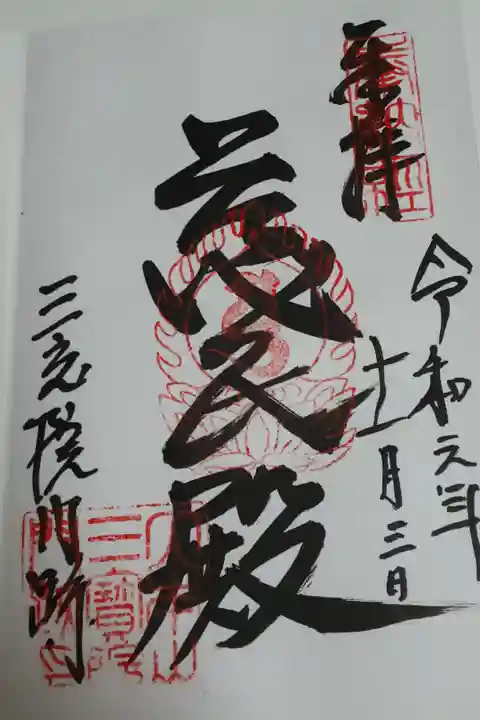 奉拝
令和元年
十一月三日
慈氏殿
三宝院門跡
三寶院